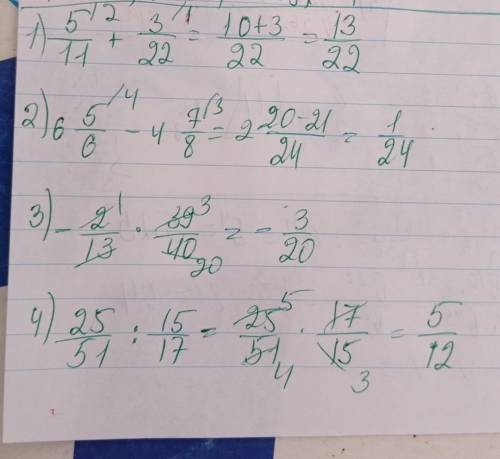 1) 5/11 /2 + 3/22 /1 = 10+3/22 = 13/22
2) 6 5/6 /4 - 4 7/8 /3 = 2 20-21/24 = 1/24
3) - 2/13 1 · 39/40 3 20 = - 3/20
4) 25/51 : 15/17 = 25/51 5 4 · 17/15 3 = 5/12